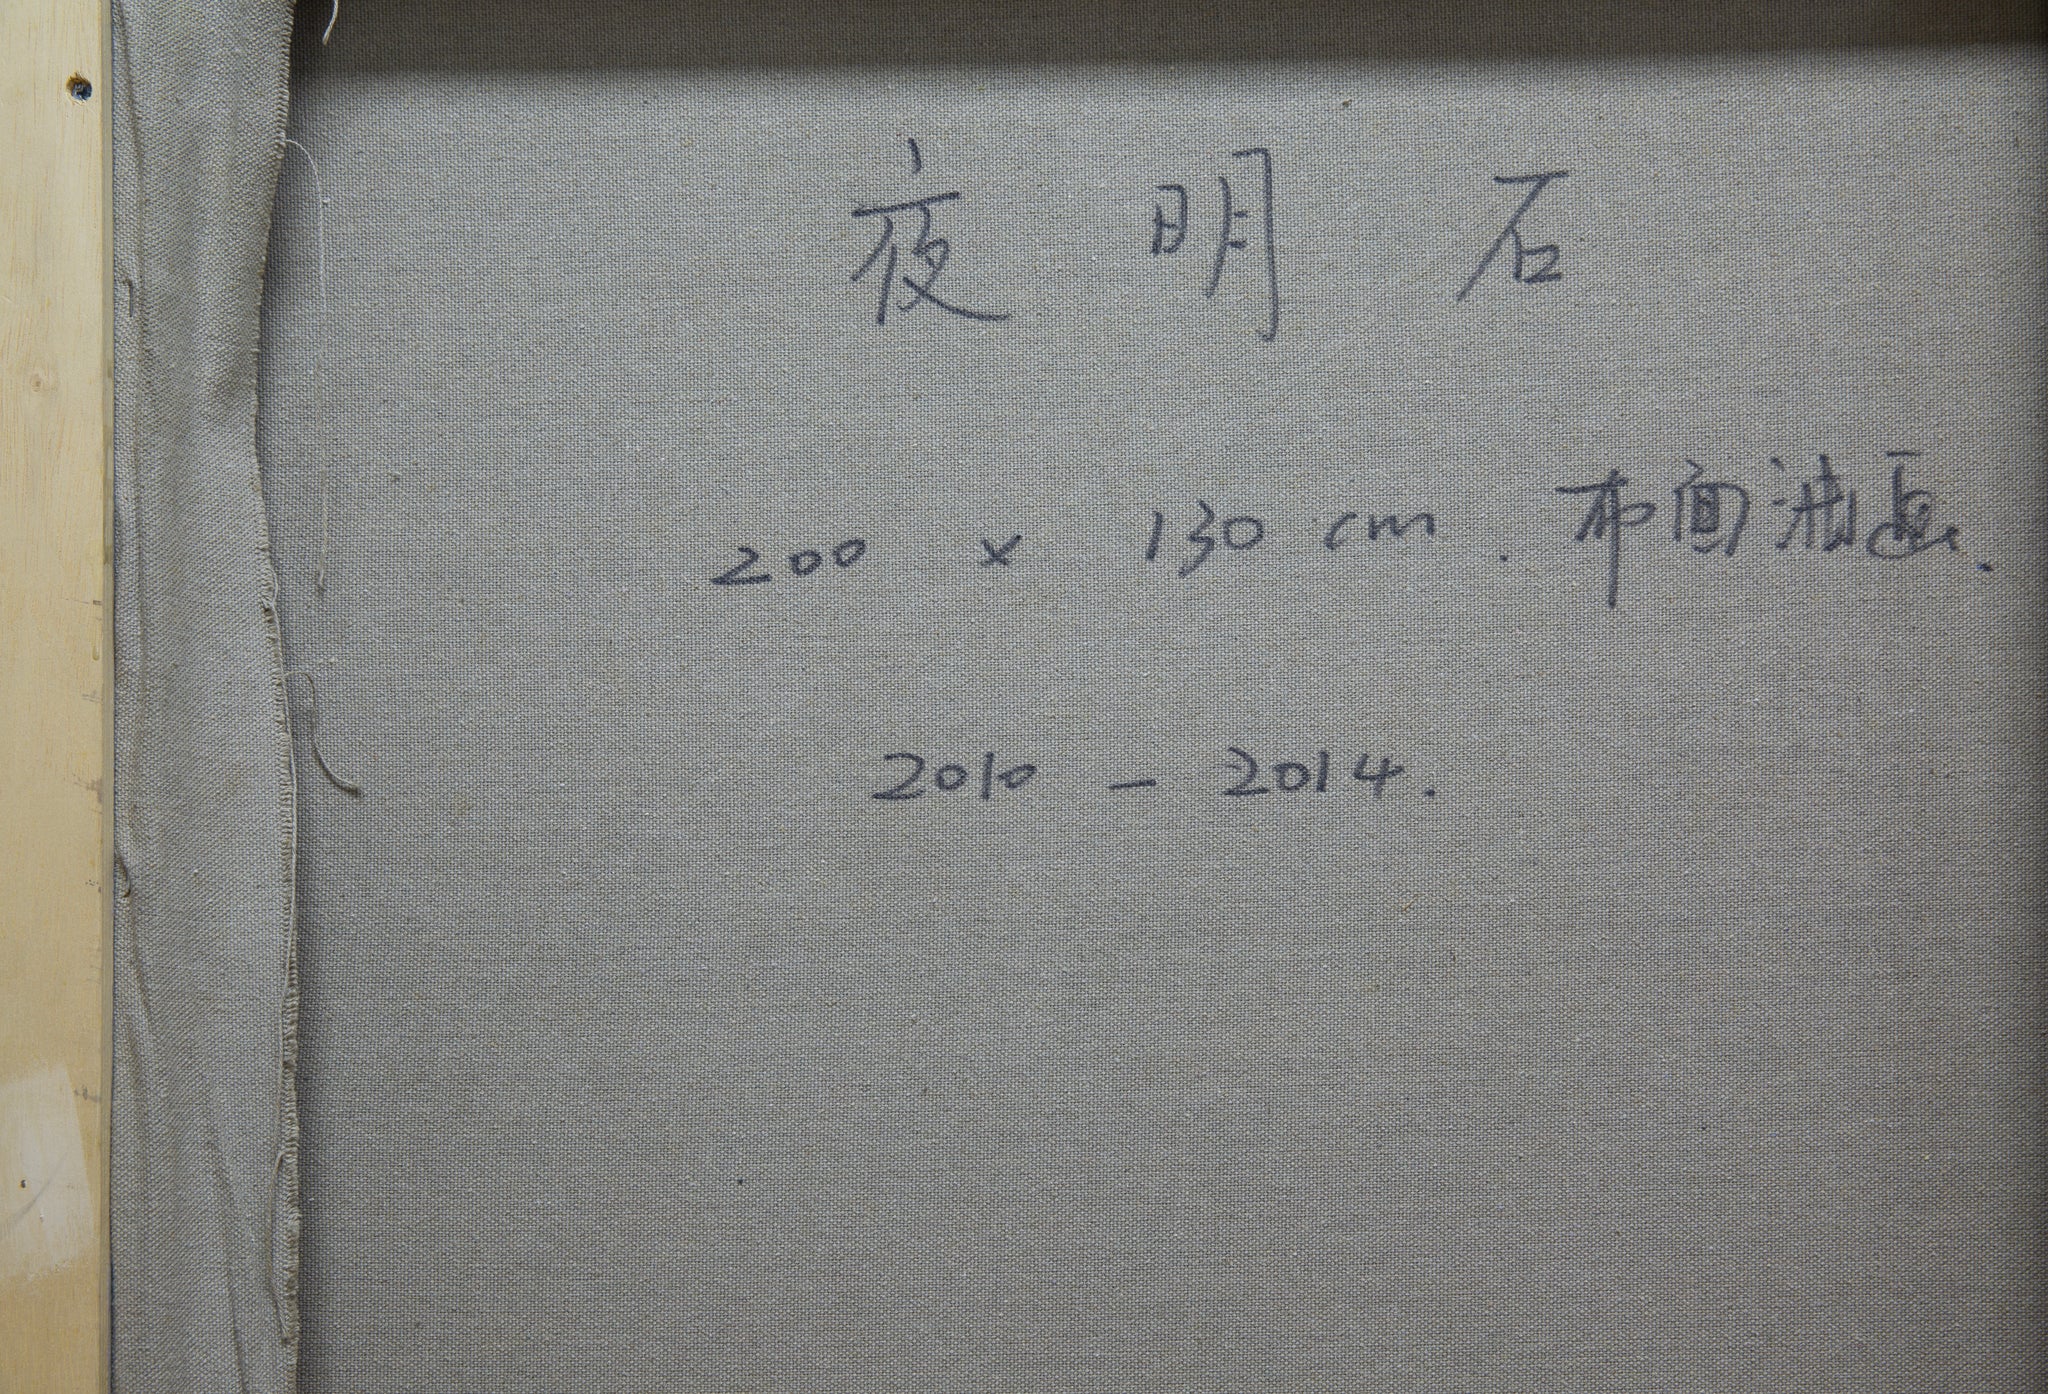 夜明石
200 × 130 cm . 布面油画.
2010 - 2014.